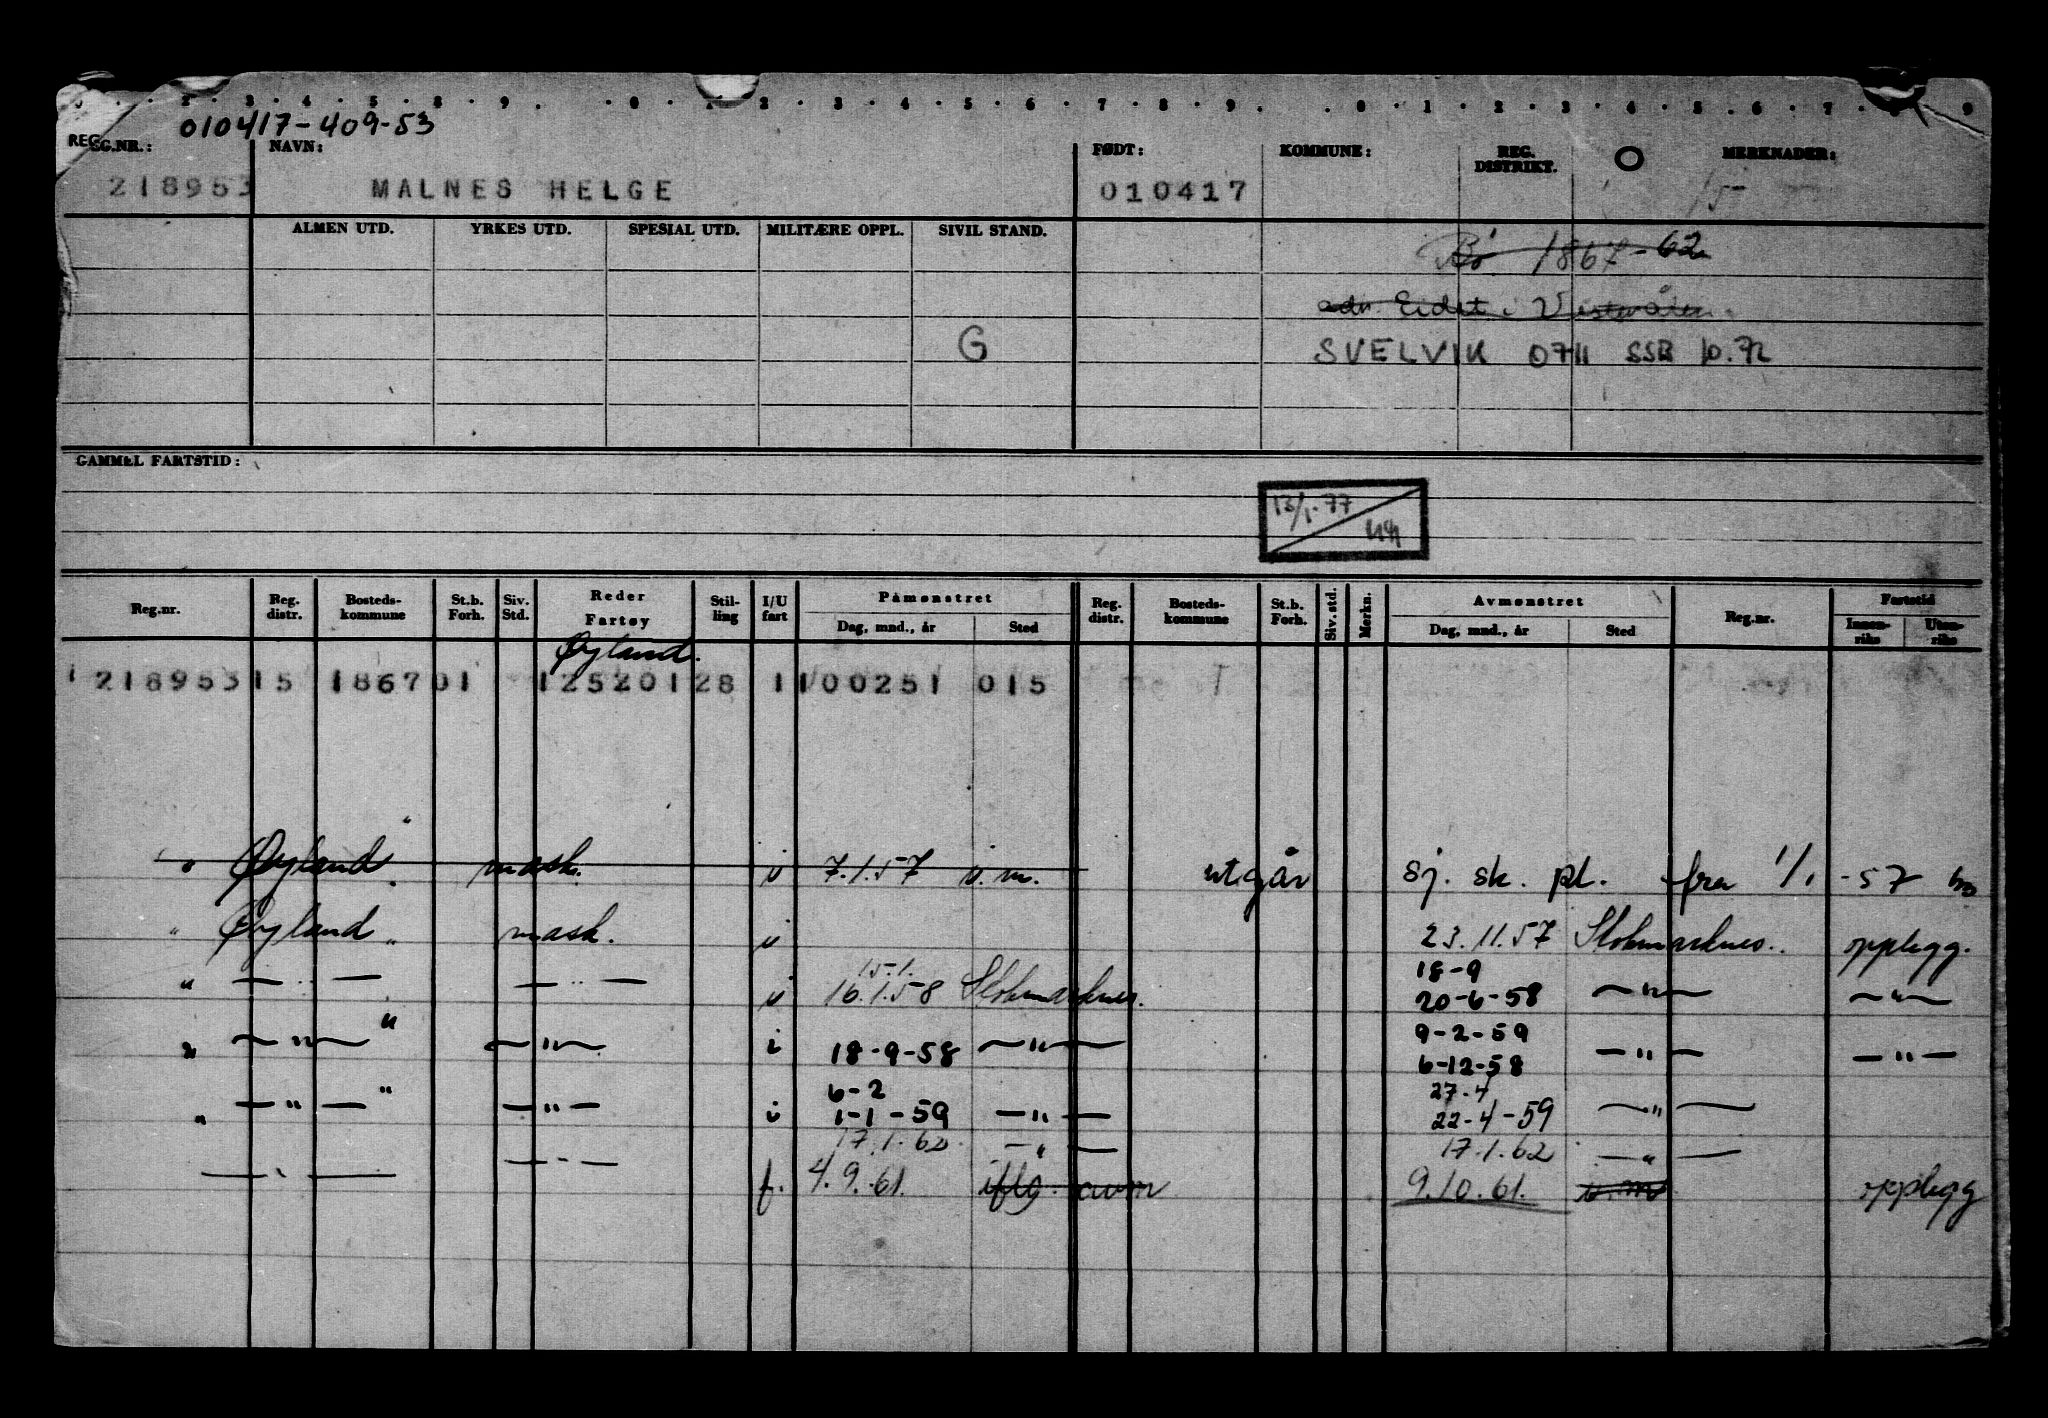 010417-409-53
REG.
REG.NR.: NAVN: FØDT: KOMMUNE: REG. DISTRIKT. O MERKNADER:
218953 MALNES HELGE 010417 15
ALMEN UTD. YRKES UTD. SPESIAL UTD. MILITÆRE OPPL. SIVIL STAND.
Bø 1867-62
adr. Eidet i Vesterålen
G SVELVIK 0711 SSB 10.72
GAMMEL FARTSTID:
13/1-77
Reg.nr. Reg. distr. Bosteds-kommune St.b. Forh. Siv. Std. Reder Fartøy Stil-ling I/U fart Påmønstret Dag, mnd., år Sted Reg. distr. Bosteds-kommune St.b. Forh. Siv. std. Merkn. Avmønstret Dag, mnd., år Sted Reg.nr. Fartstid Innen-riks Uten-riks
Øyland.
218953 15 1867 01 125201 28 1 100251 015
" Øyland " mask. i 7.1.57 u.m. utgår sj. sk. pl. fra 1/1 -57
" Øyland " mask. i 23.11.57 Stokmarknes. opplegg.
15.1. 18-9
" — " — — " — i 16.1.58 Stokmarknes. 20-6-58 — " — — " —
9-2-59
" — " — " — " — i 18-9-58 — " — 6-12-58 — " — — " —
6-2 27-4
" — " — " — " — i 1-1-59 — " — 22-4-59 — " —
17.1.62 — " — 17.1.62 — " —
— " — — " — f. 4.9.61. iflg. avm 9.10.61. u.m opplegg